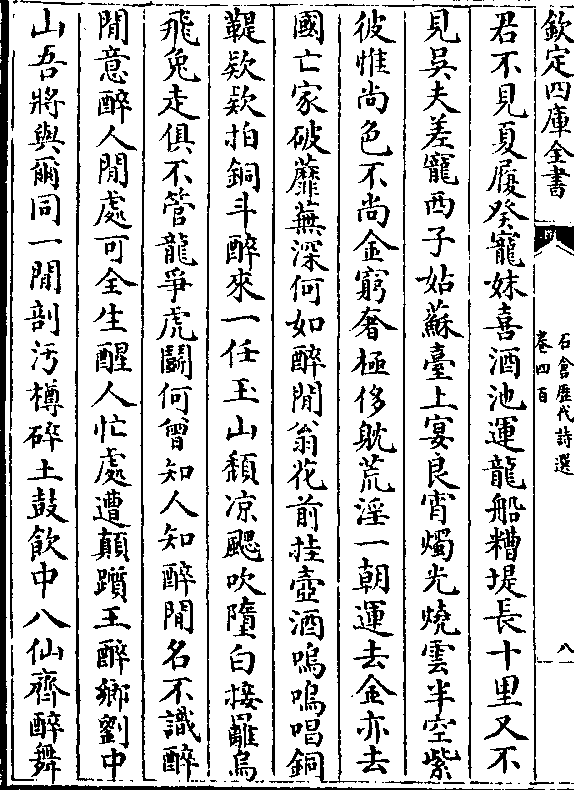 欽定四庫全書
石倉歷代詩選
卷四百
八
君不見夏履癸寵妺喜酒池運龍船糟堤長十里又不
見吳夫差寵西子姑蘇臺上宴良宵燭光燒雲半空紫
彼惟尚色不尚金窮奢極侈躭荒淫一朝運去金亦去
國亡家破蘼蕪深何如醉閒翁花前挂壺酒嗚嗚唱銅
鞮欵欵拍銅斗醉來一任玉山頽凉颸吹墮白接䍦烏
飛兔走俱不管龍爭虎鬭何曾知人知醉閒名不識醉
閒意醉人閒處可全生醒人忙處遭顛躓王醉鄉劉中
山吾將與爾同一閒剖汚樽碎土鼓飲中八仙齊醉舞